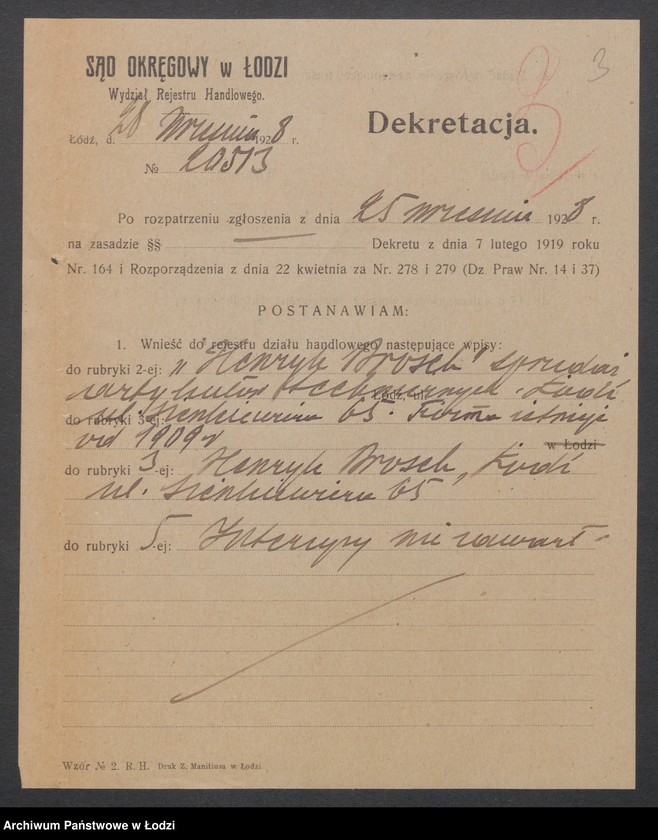 3
3
SĄD OKRĘGOWY w ŁODZI
Wydział Rejestru Handlowego.
Łódź, d. 28 Września 1928 r.
№ 20513
Dekretacja.
Po rozpatrzeniu zgłoszenia z dnia 25 września 1928 r.
na zasadzie §§ — Dekretu z dnia 7 lutego 1919 roku
Nr. 164 i Rozporządzenia z dnia 22 kwietnia za Nr. 278 i 279 (Dz. Praw Nr. 14 i 37)
POSTANAWIAM:
1. Wnieść do rejestru działu handlowego następujące wpisy:
do rubryki 2-ej: „Henryk Brosch" sprzedaż
artykułów technicznych. Łódź
Łódź, ul.
do rubryki 3-ej: ul. Sienkiewicza 65. Firma istnieje
od 1909 r
w Łodzi
do rubryki 3-ej: Henryk Brosch, Łódź
ul. Sienkiewicza 65
do rubryki 5-ej: Intercyzy nie zawarł
Wzór № 2. R. H. Druk Z. Manitiusa w Łodzi.
Archiwum Państwowe w Łodzi